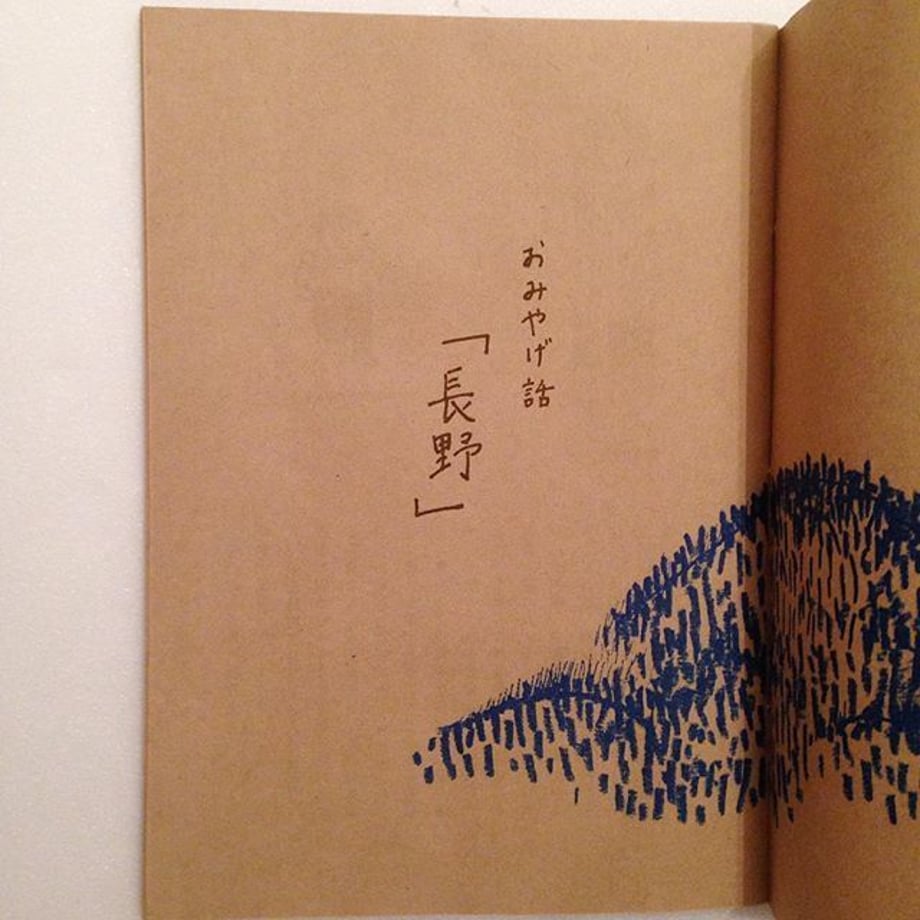 おみやげ話
「長野」